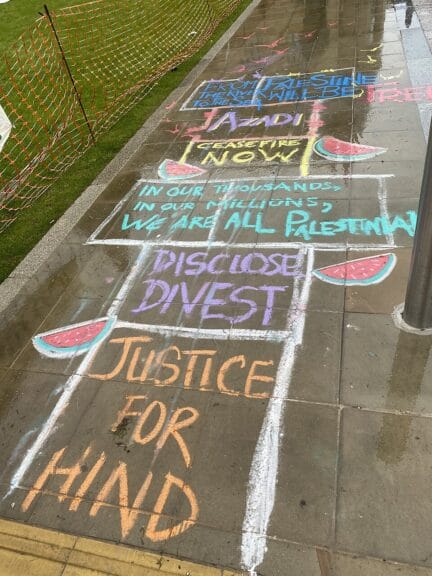 FROM THE RIVER TO THE SEA
PALESTINE WILL BE FREE
AZADI
CEASEFIRE
NOW
IN OUR THOUSANDS,
IN OUR MILLIONS,
WE ARE ALL PALESTINIA
DISCLOSE
DIVEST
JUSTICE
FOR
HIND